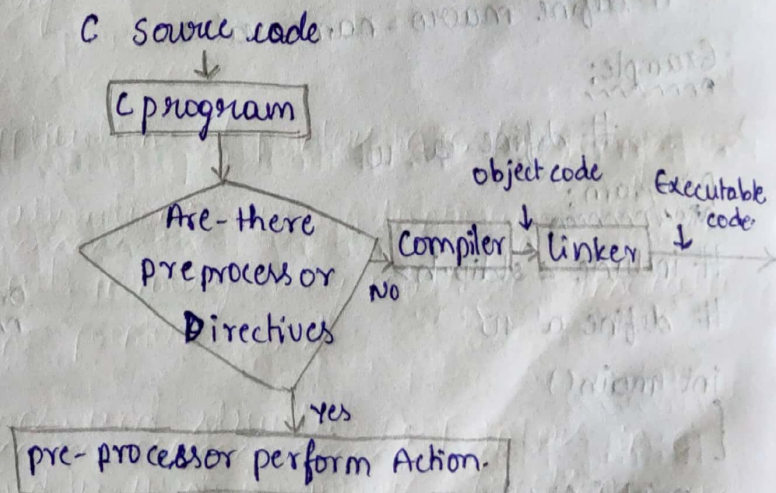 C source code
C program
Are-there
preprocessor
Directives
NO
compiler
object code
linker
Executable
code
yes
pre-processor perform Action.